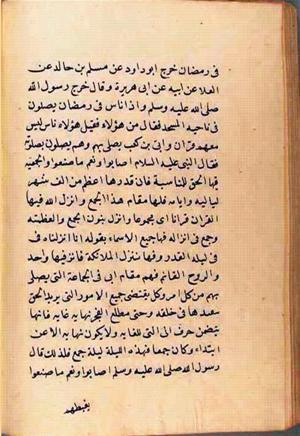 فى رمضان خرج ابو داود عن مسلم بن خالد عن
العلا عن ابيه عن ابى هريرة وقال خرج رسول الله
صلى الله عليه وسلم واذا ناس فى رمضان يصلون
فى ناحيه المسجد فقال من هؤلاء فقيل هؤلاء ناس ليس
معهم قران وابى بن كعب يصلى بهم وهم يصلون بصلوته
فقال النبى عليه السلام اصابوا ونعم ما صنعوا والجمعية
فيها الحق للمناسبة فان قدرها اعظم من الف شهر
لياليه وايامه فلها مقام هذا الجمع وانزل الله فيها
القران قرانا اى مجموعا وانزل بنون الجمع والعظمته
وجمع فى انزاله فيها جميع الاسماء بقوله انا انزلناه فى
فى ليلة القدر وفيها تنزل الملائكة فانزل فيها واحد
والروح القائم فهم مقام ابى فى الجماعة التى يصلى
بهم من كل امر وكل يقتضى جميع الامور التى يريد الحق
سعدها فى خلقه وحتى مطلع الفجر نهايه غايه فانها
يتضمن حرف الى التى للغايه ولا يكون نهايه الا عن
ابتداء وكان جمعا فهذه الليلة ليلة جمع فلذلك قال
رسول الله صلى الله عليه وسلم اصابوا ونعم ما صنعوا
يغبطهم